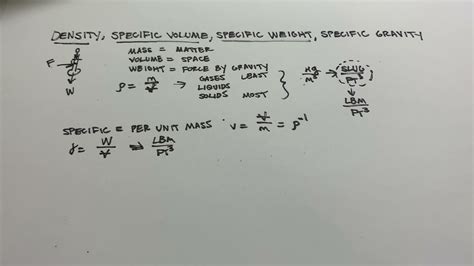 DENSITY, SPECIFIC VOLUME, SPECIFIC WEIGHT, SPECIFIC GRAVITY
MASS = MATTER
VOLUME = SPACE
WEIGHT = FORCE BY GRAVITY
F
W
ρ = m/V → GASES LEAST
LIQUIDS
SOLIDS MOST
kg/m³ SLUG/FT³
LBM/FT³
SPECIFIC = PER UNIT MASS v = V/m = ρ⁻¹
γ = W/V ⇒ LBM/FT³